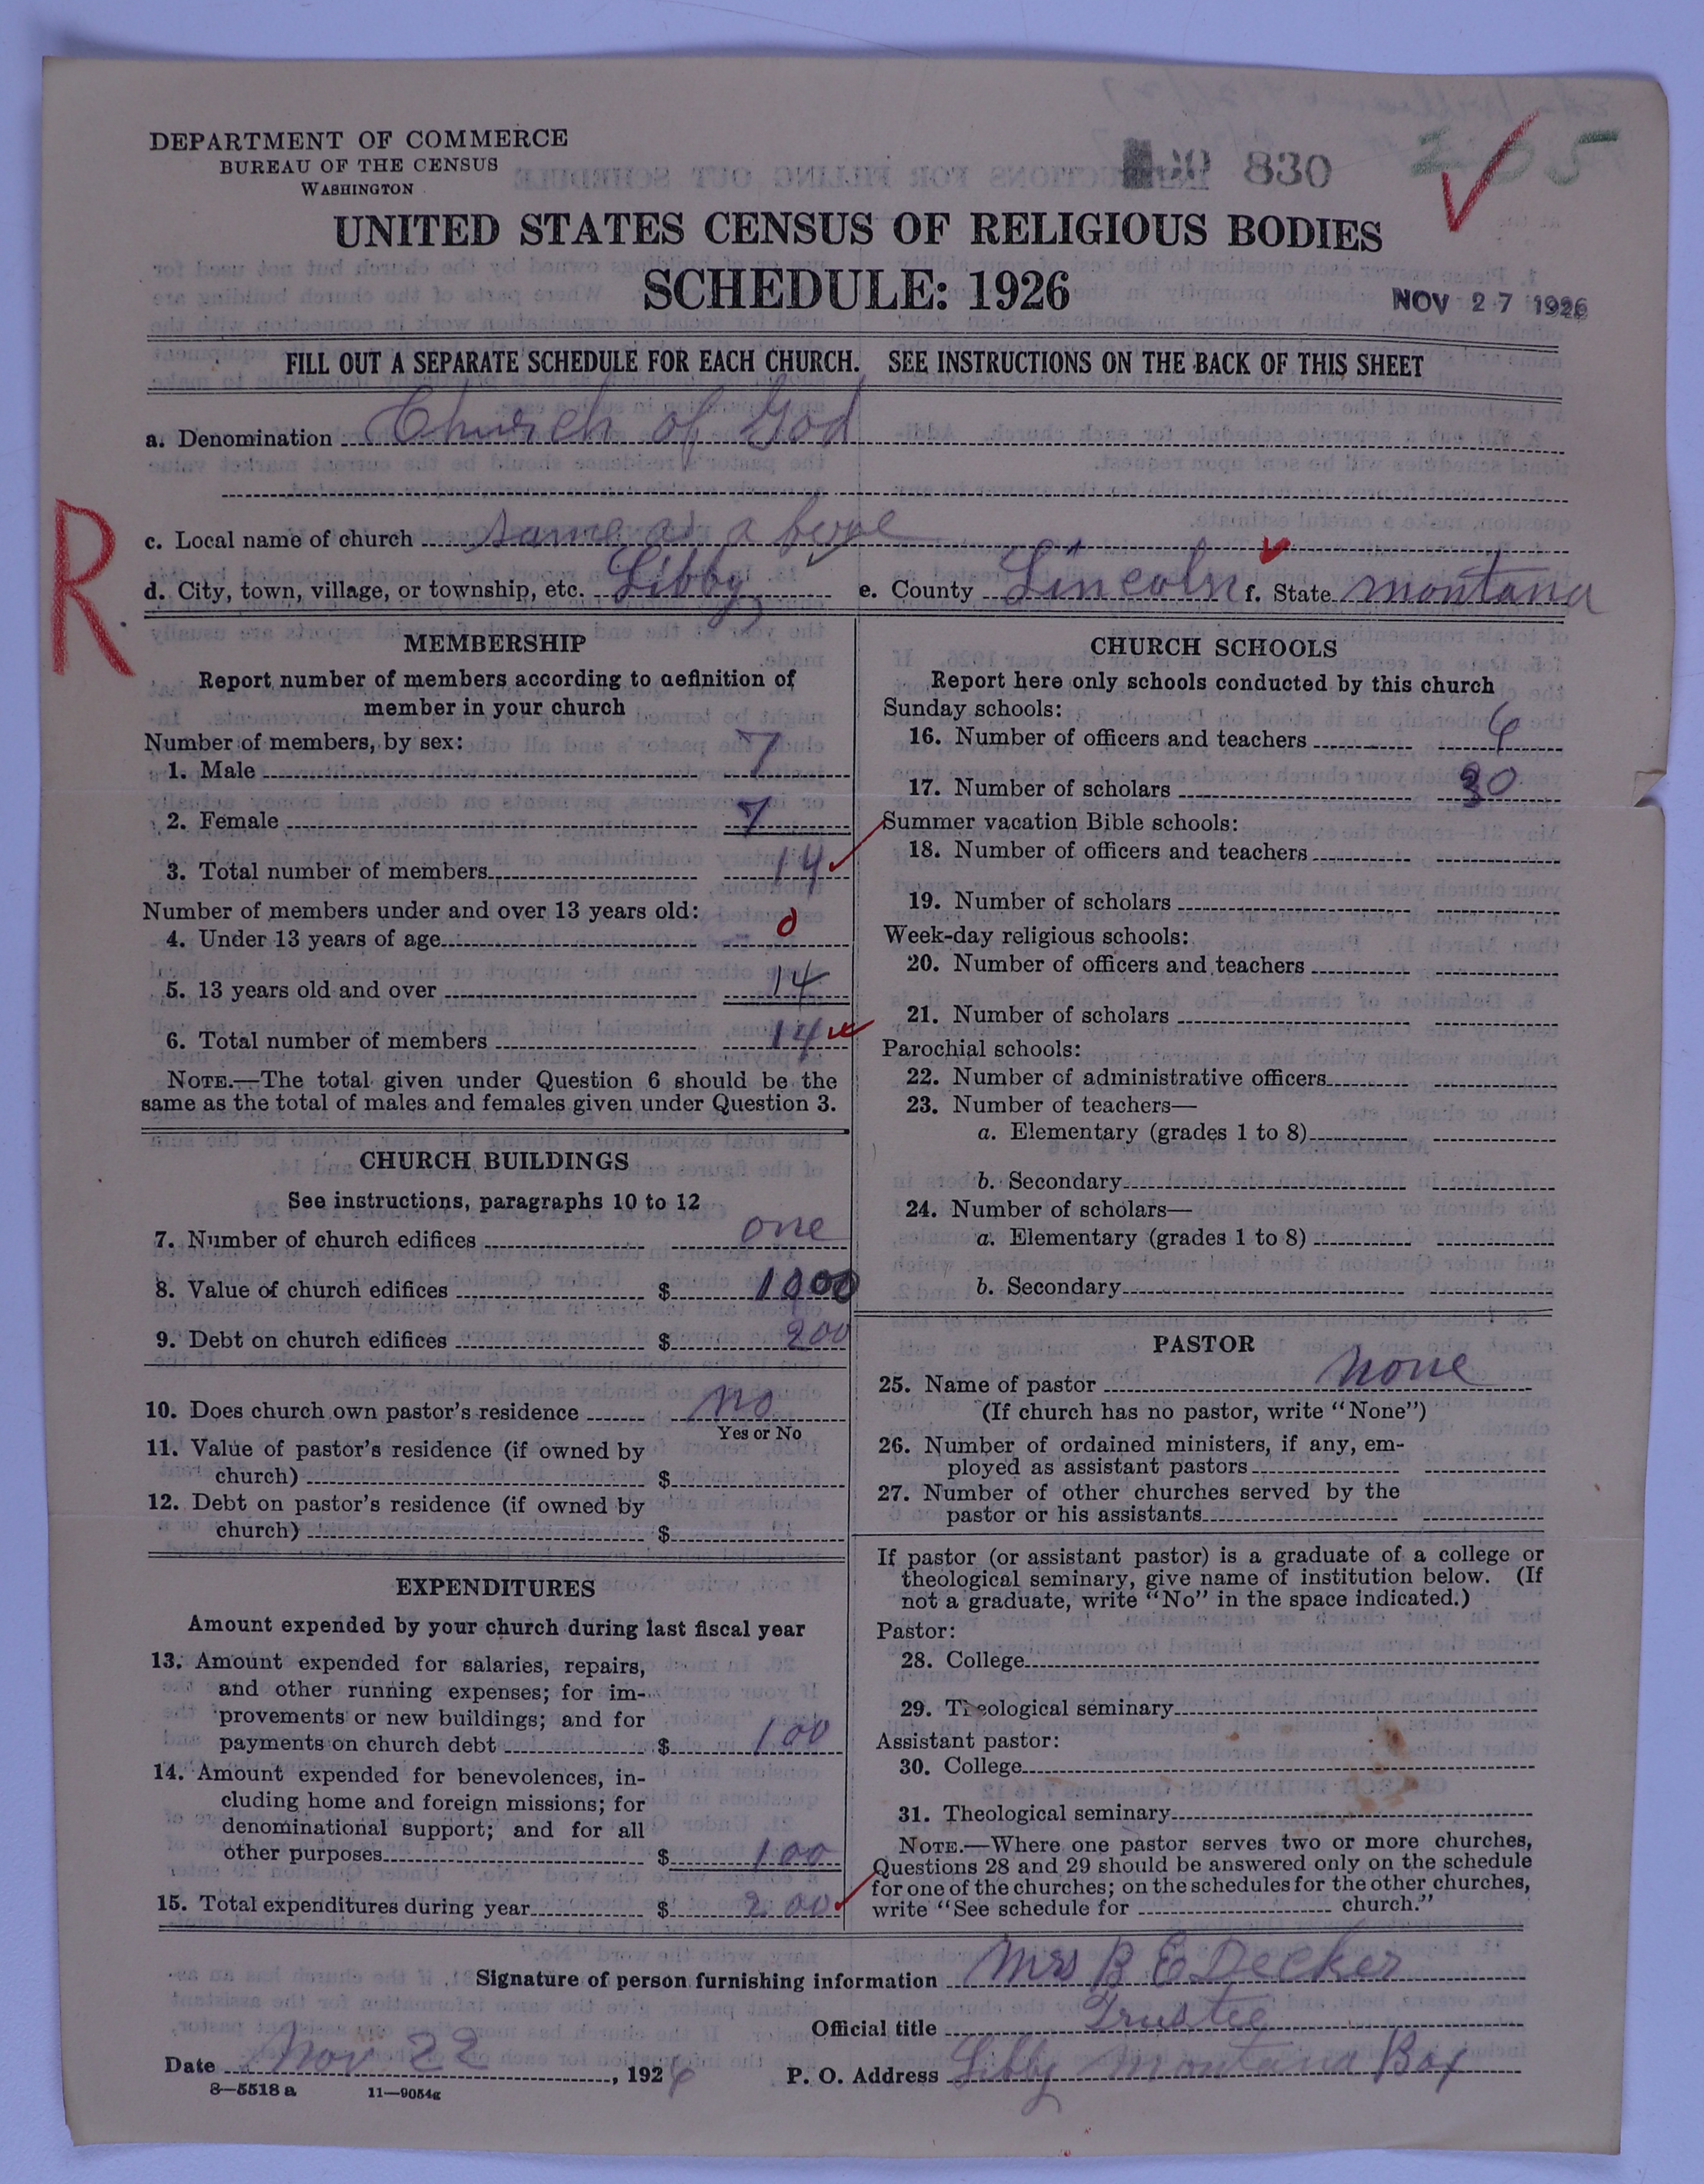 DEPARTMENT OF COMMERCE
BUREAU OF THE CENSUS
WASHINGTON
830
UNITED STATES CENSUS OF RELIGIOUS BODIES
SCHEDULE: 1926
NOV 27 1926
FILL OUT A SEPARATE SCHEDULE FOR EACH CHURCH. SEE INSTRUCTIONS ON THE BACK OF THIS SHEET
a. Denomination Church of God
R
c. Local name of church same as above
d. City, town, village, or township, etc. Libby e. County Lincoln f. State Montana
MEMBERSHIP
Report number of members according to definition of
member in your church
Number of members, by sex:
1. Male 7
2. Female 7
3. Total number of members 14
Number of members under and over 13 years old:
4. Under 13 years of age 0
5. 13 years old and over 14
6. Total number of members 14
NOTE.—The total given under Question 6 should be the
same as the total of males and females given under Question 3.
CHURCH BUILDINGS
See instructions, paragraphs 10 to 12
7. Number of church edifices one
8. Value of church edifices $ 1000
9. Debt on church edifices $ 200
10. Does church own pastor's residence no
Yes or No
11. Value of pastor's residence (if owned by
church) $
12. Debt on pastor's residence (if owned by
church) $
EXPENDITURES
Amount expended by your church during last fiscal year
13. Amount expended for salaries, repairs,
and other running expenses; for im-
provements or new buildings; and for
payments on church debt $ 100
14. Amount expended for benevolences, in-
cluding home and foreign missions; for
denominational support; and for all
other purposes $ 100
15. Total expenditures during year $ 200
CHURCH SCHOOLS
Report here only schools conducted by this church
Sunday schools:
16. Number of officers and teachers 6
17. Number of scholars 30
Summer vacation Bible schools:
18. Number of officers and teachers
19. Number of scholars
Week-day religious schools:
20. Number of officers and teachers
21. Number of scholars
Parochial schools:
22. Number of administrative officers
23. Number of teachers—
a. Elementary (grades 1 to 8)
b. Secondary
24. Number of scholars—
a. Elementary (grades 1 to 8)
b. Secondary
PASTOR
25. Name of pastor None
(If church has no pastor, write "None")
26. Number of ordained ministers, if any, em-
ployed as assistant pastors
27. Number of other churches served by the
pastor or his assistants
If pastor (or assistant pastor) is a graduate of a college or
theological seminary, give name of institution below. (If
not a graduate, write "No" in the space indicated.)
Pastor:
28. College
29. Theological seminary
Assistant pastor:
30. College
31. Theological seminary
NOTE.—Where one pastor serves two or more churches,
Questions 28 and 29 should be answered only on the schedule
for one of the churches; on the schedules for the other churches,
write "See schedule for church."
Signature of person furnishing information Mrs B E Decker
Official title Trustee
Date Nov 22, 1926 P. O. Address Libby Montana Box
8—5518 a 11—9054g